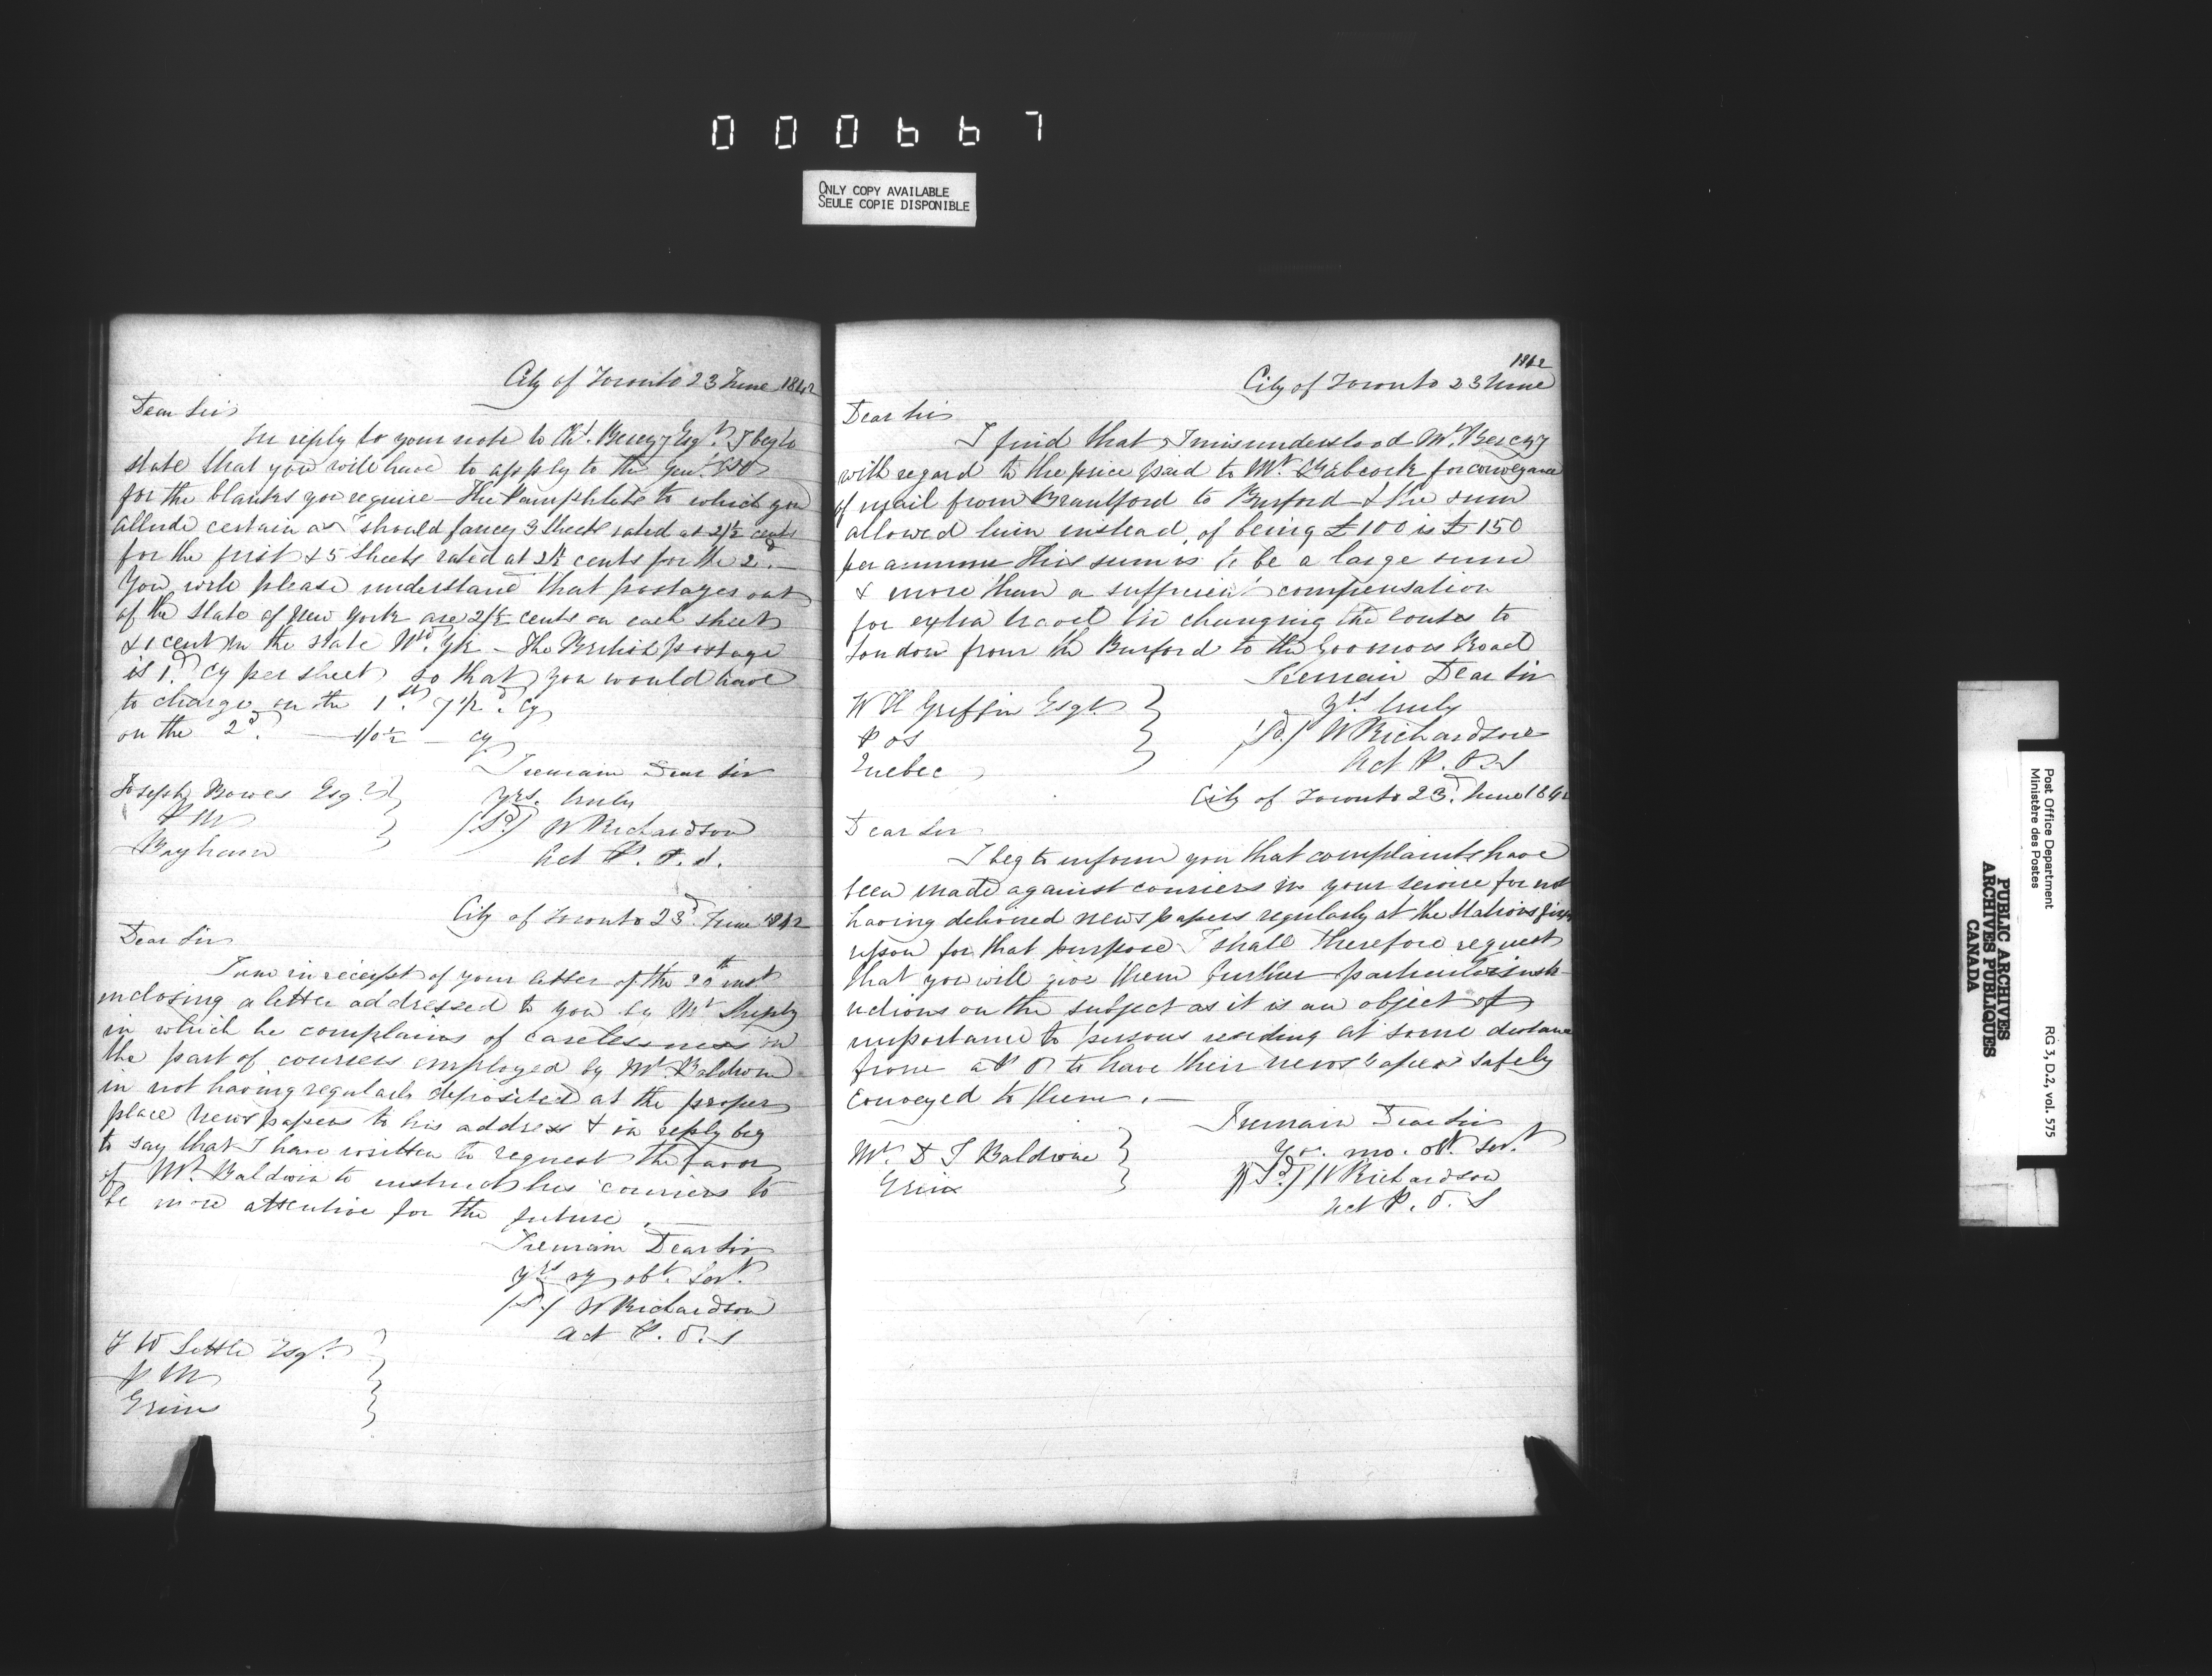 000667
ONLY COPY AVAILABLE
SEULE COPIE DISPONIBLE
City of Toronto 23 June 1842
Dear Sir
In reply to your note to Chs. Berczy Esqr. I beg to
state that you will have to apply to the Genl. P.O
for the blanks you require - The Pamphlets to which you
allude certain as I should fancy 3 sheets rated at 2½ cents
for the first & 5 sheets rated at 2½ cents for the 2d. -
You will please understand that postages out
of the State of New York are 2½ cents on each sheet
& 1 cent in the State - The British postage
is 1d. Cy per sheet so that you would have
to charge on the 1st. 7½d. Cy
on the 2d. - 1/0½ - Cy
I remain Dear Sir
Yrs. truly
(Sd.) W Richardson
Act P. O. S.
Joseph Bowes Esqr.
P M
Bayham
City of Toronto 23d. June 1842
Dear Sir
I am in receipt of your letter of the 20th inst
inclosing a letter addressed to you by Mr
in which he complains of carelessness on
the part of couriers employed by Mr Baldwin
in not having regularly deposited at the proper
place newspapers to his address & in reply beg
to say that I have written to request the favor
of Mr. Baldwin to instruct his couriers to
be more attentive for the future. -
I remain Dear Sir
Yrs. obt. Sert.
(Sd.) W Richardson
Act P. O. S
Esqr.
P M
1842
City of Toronto 23 June
Dear Sir
I find that I misunderstood Mr. Berczy
with regard to the price paid to Mr. Babcock for conveyance
of mail from Brantford to Burford & the sum
allowed him instead of being £100 is £150
per annum This sum is to be a large sum
& more than a sufficient compensation
for extra travel in changing the routes to
London from the Burford to the Road
I remain Dear Sir
Yrs truly
(Sd.) W Richardson
Act P. O. S
W H Griffin Esqr.
P O S
Quebec
City of Toronto 23d. June 1842
Dear Sir
I beg to inform you that complaints have
been made against couriers in your service for not
having delivered newspapers regularly at the Stations
upon for that purpose I shall therefore request
that you will give them further particular instr-
uctions on the subject as it is an object of
importance to persons residing at some distance
from a P O to have their newspapers safely
conveyed to them. -
I remain Dear Sir
Yr. mo. obt. Sert.
(Sd.) W Richardson
Act P. O. S
Mr. Baldwin
PUBLIC ARCHIVES
ARCHIVES PUBLIQUES
CANADA
Post Office Department
Ministère des Postes
RG 3, D.2, vol. 575